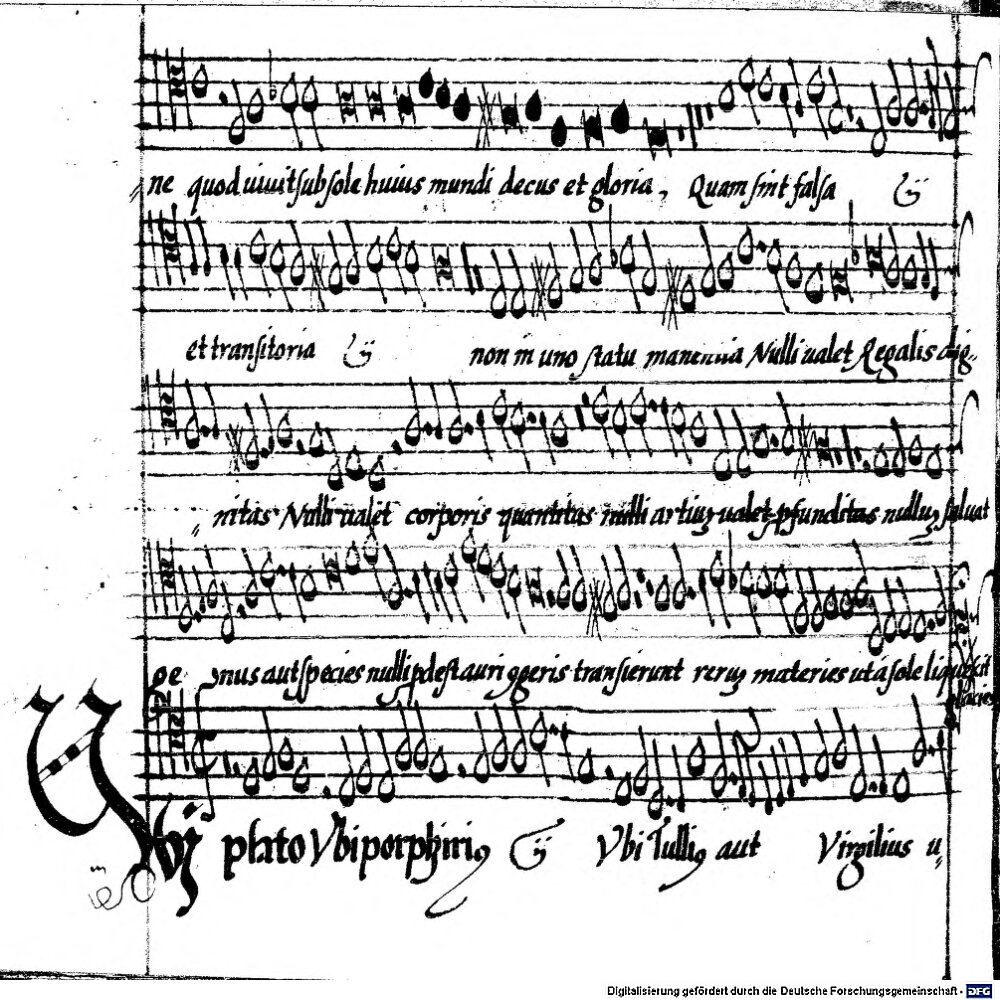 ne quod uiuit sub sole huius mundi decus et gloria, Quam sint falsa ij
et transitoria ij non in uno statu manentia Nulli ualet Regalis dig-
nitas Nulli ualet corporis quantitas nulli artiuȝ ualet pfunditas nulluȝ saluat
ge nus aut species nulli pdest auri ggeris transierunt reruȝ materies ut a sole liquescit
glacies
Vbi plato Vbi porphiriꝰ ij Vbi Tulliꝰ aut Virgilius u
Digitalisierung gefördert durch die Deutsche Forschungsgemeinschaft - DFG